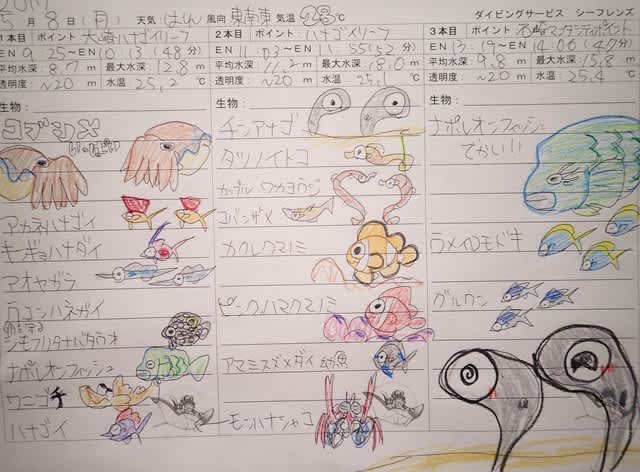 5月8日(月) 天気 はれ 風向 東南東 気温 28℃ ダイビングサービス シーフレンズ
1本目 ポイント 大崎ハナゴイリーフ
EN 9:25〜EX 10:13(48分)
平均水深: 8.7m 最大水深 12.8m
透明度: ~20m 水温 25.2℃
生物:
コブシメ
いっぱい
アカネハナゴイ
キンギョハナダイ
アオヤガラ
ウコンハネガイ
卵を守る
シモフリタナバタウオ
ナポレオンフィッシュ
ワニゴチ
ハナゴイ
2本目 ポイント ハナゴイリーフ
EN 11:03〜EX 11:55(52分)
平均水深: 11.2m 最大水深 18.0m
透明度: ~20m 水温 25.1℃
生物:
チンアナゴ
タツノイトコ
カップル ワカヨウジ
コバンザメ
カクレクマノミ
ピンク ハマクマノミ
アマミスズメダイ 幼魚
モンハナシャコ
3本目 ポイント 石崎マンタシティポイント
EN 13:19〜EX 14:06(47分)
平均水深: 9.8m 最大水深 15.8m
透明度: ~20m 水温 25.4℃
生物:
ナポレオンフィッシュ
でかい!!
ウメイロモドキ
グルクン